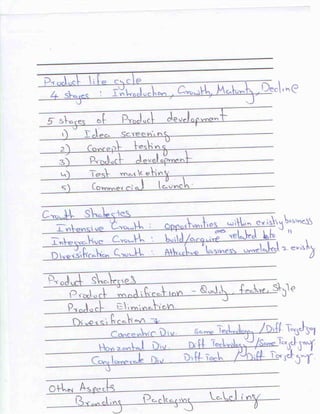 Product life cycle
4 Stages : Introduction, Growth, Maturity, Decline
5 stages of Product development
1) Idea screening
2) Concept testing
3) Product development
4) Test marketing
5) Commercial launch
Growth Strategies
Intensive Growth : opportunities within existing business
Integrative Growth : build/acquire related "
Diversification Growth : Attractive business unrelated 2 existing
Product Strategies
Product modification - Quality, feature, Style
Product Elimination
Diversification
Concentric Div. Same Technology / Diff Target
Horizontal Div Diff Technology / Same Target
Conglomerate Div Diff Tech / Diff Target
Other Aspects
Branding Packaging Labeling